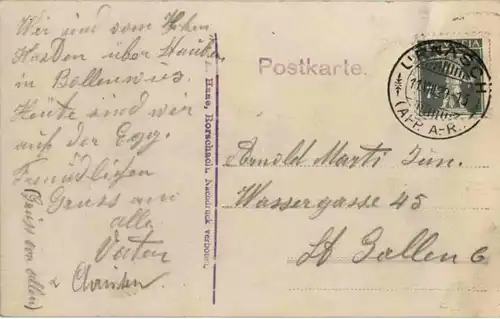 Wir sind vom Hohen
Kasten über Stauben
in Bollenwies.
Heute sind wir
auf der Egg.
Freundlichen
Gruss an
alle
Vater
& Christen.
(Gruss von allen)
Hane, Rorschach, Nachdruck verboten.
Postkarte.
URNÄSCH
(APP. A.-R.)
Arnold Marti Jun.
Wassergasse 45
St Gallen C